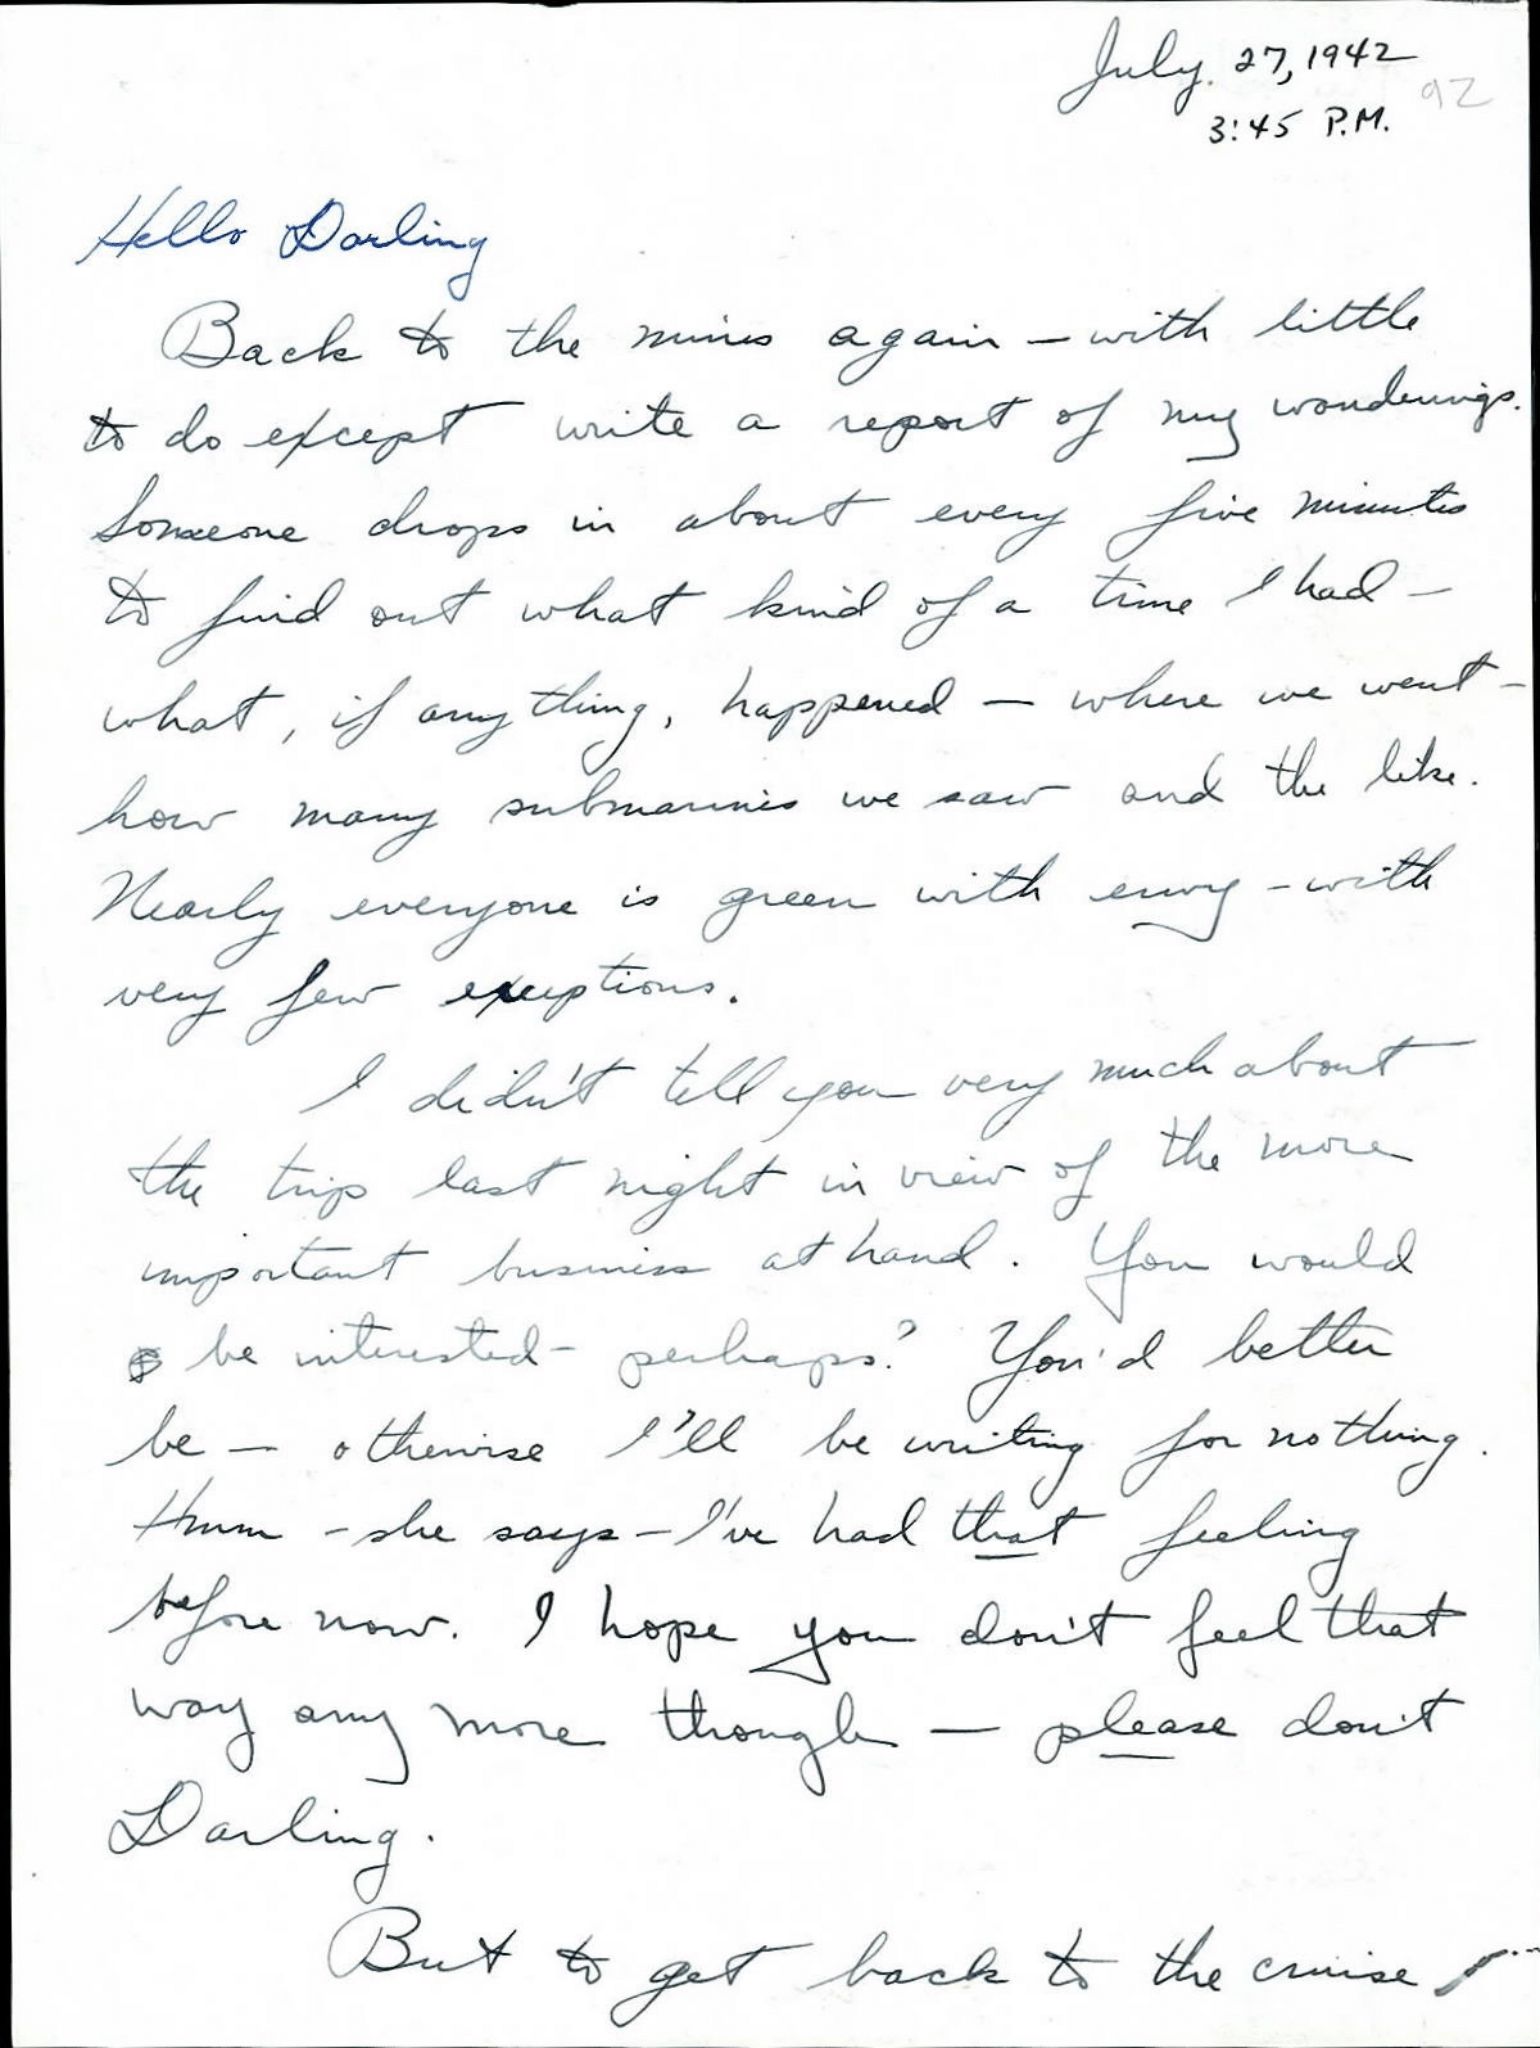 July. 27, 1942
92
3:45 P.M.
Hello Darling
Back to the mines again – with little
to do except write a report of my wonderings.
Someone drops in about every five minutes
to find out what kind of a time I had –
what, if anything, happened – where we went –
how many submarines we saw and the like.
Nearly everyone is green with envy – with
very few exceptions.
I didn't tell you very much about
the trip last night in view of the more
important business at hand. You would
be interested – perhaps? You'd better
be – otherwise I'll be writing for nothing.
Hmm – she says – I've had that feeling
before now. I hope you don't feel that
way any more though – please don't
Darling.
But to get back to the cruise